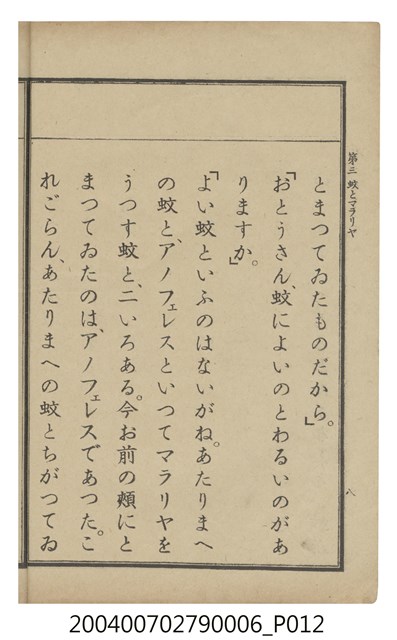 第三 蚊とマラリヤ
とまつてゐたものだから。」
「おとうさん、蚊によいのとわるいのがあ
りますか。」
「よい蚊といふのはないがね。あたりまへ
の蚊と、アノフェレスといつてマラリヤを
うつす蚊と、二いろある。今お前の頰にと
まつてゐたのは、アノフェレスであつた。こ
れごらん、あたりまへの蚊とちがつてゐ
八
200400702790006_P012